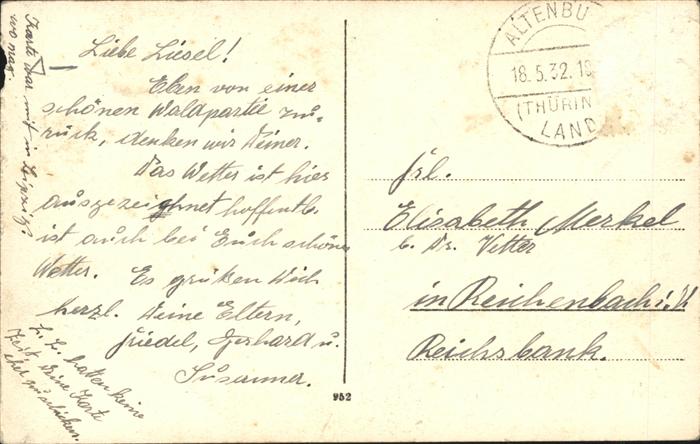 Liebe Liesel!
Eben von einer
schönen Waldpartie zu-
rück, denken wir Deiner.
Das Wetter ist hier
ausgezeichnet hoffentl.
ist auch bei Euch schönes
Wetter. Es grüßen Dich
herzl. Deine Eltern,
Friedel, Gerhard u.
Susanne.
L. L. hatten keine
Zeit Deine Karte
eher zu schicken.
Karte war mit in Leipzig.
wo war
ALTENBU
18.5.32.18
(THÜRIN
LAND
Frl.
Elisabeth Merkel
b. Dr. Vetter
in Reichenbach i. V.
Reichsbank.
952